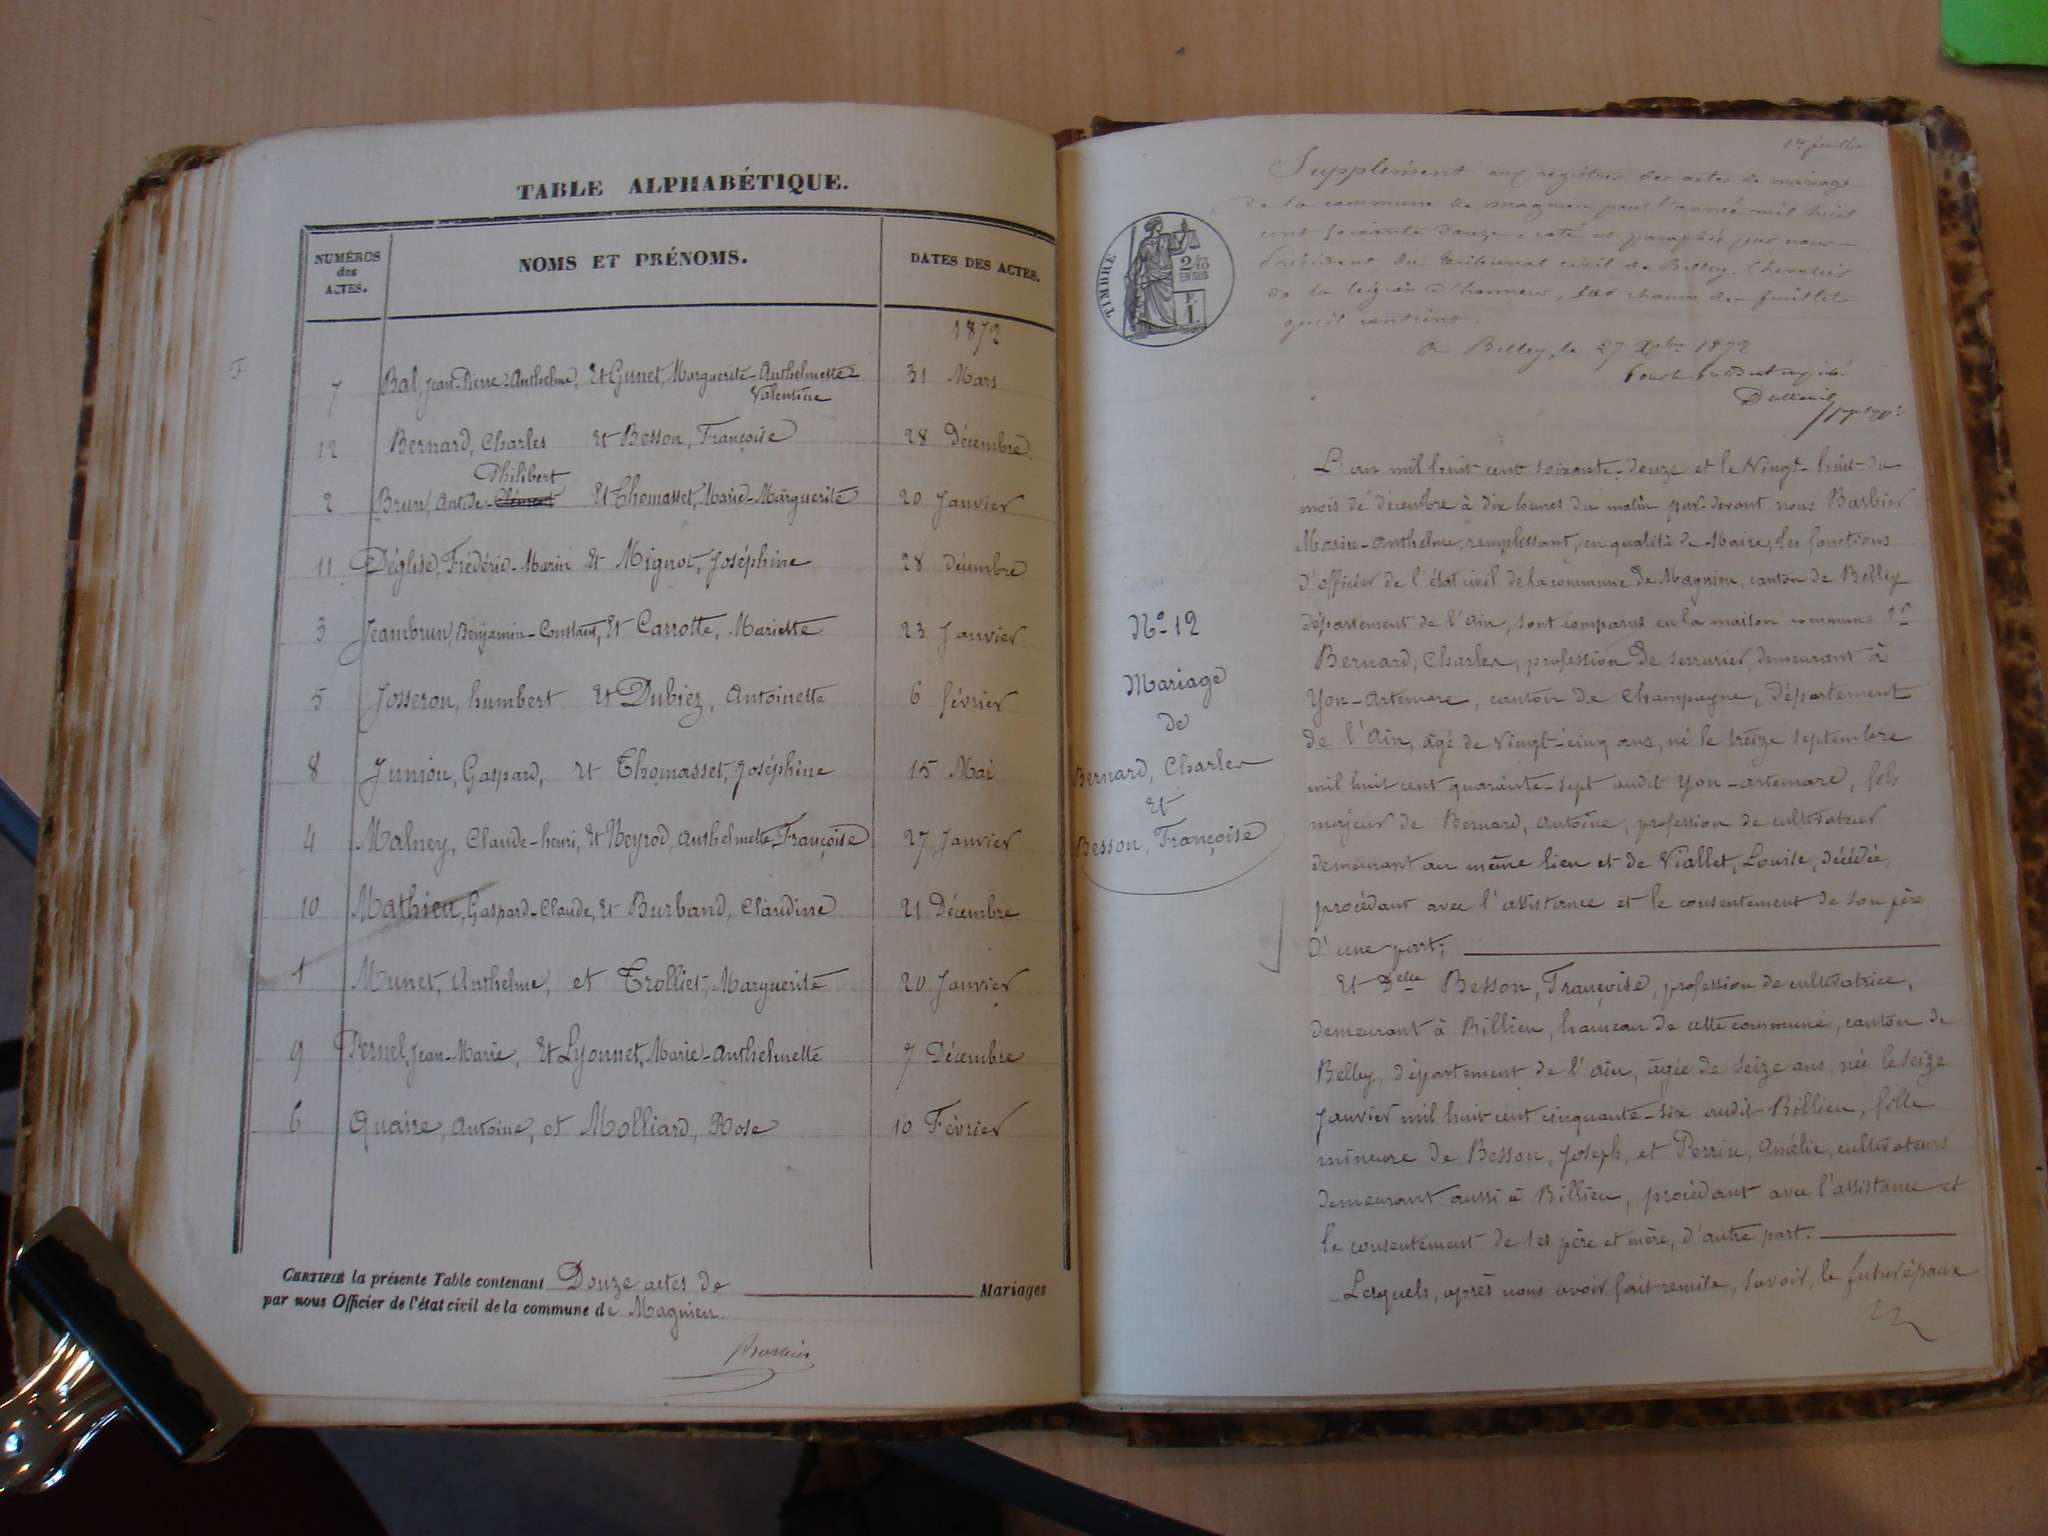 TABLE ALPHABÉTIQUE.
NUMÉROS des ACTES.
NOMS ET PRÉNOMS.
DATES DES ACTES.
1872
F
7 Bal, Jean-Pierre-Anthelme, Et Gunet, Marguerite-Anthelmette Valentine 31 Mars
12 Bernard, Charles Et Besson, Françoise 28 Décembre
Philibert
2 Brun, Antide-Clément Et Thomasset, Marie-Marguerite 20 Janvier
11 Déglise, Frédéric-Marin Et Mignot, Joséphine 28 décembre
3 Jeambrun, Benjamin-Constant, Et Carrotte, Mariette 23 Janvier
5 Josseron, humbert Et Dubiez, Antoinette 6 février
8 Junion, Gaspard, Et Thomasset, Joséphine 15 Mai
4 Malney, Claude-henri, Et Neyrod, Anthelmette, Françoise 27 Janvier
10 Mathieu, Gaspard-Claude, Et Burband, Claudine 21 Décembre
1 Munet, Anthelme, et Trolliet, Marguerite 20 Janvier
9 Pernel, Jean-Marie, Et Lyonnet, Marie-Anthelmette 7 Décembre
6 Quaire, Antoine, et Molliard, Rose 10 Février
CERTIFIÉ la présente Table contenant Douze actes de Mariages
par nous Officier de l'état civil de la commune de Magnieu.
Barbier
Supplément aux registres des actes de mariage
de la commune de magnieu pour l'année mil huit
cent soixante douze, coté et paraphé par nous
Président du tribunal civil de Belley, Chevalier
de la légion d'honneur, sur chacun des feuillets
qu'il contient.
A Belley, le 27 Xbre 1872
Pour le Président
TIMBRE
2/10
EN SUS
F.
1.
L'an mil huit cent soixante-douze et le Vingt-huit du
mois de décembre à dix heures du matin par-devant nous Barbier
Marin-Anthelme, remplissant, en qualité de Maire, les fonctions
d'officier de l'état civil de la commune de Magnieu, canton de Belley
département de l'Ain, sont comparus en la maison commune
Bernard, Charles, profession de serrurier, demeurant à
Yon-Artemare, canton de Champagne, département
de l'Ain, âgé de Vingt-cinq ans, né le treize septembre
mil huit cent quarante-sept audit Yon-artemare, fils
majeur de Bernard, Antoine, profession de cultivateur
demeurant au même lieu et de Viallet, Louise, décédée,
procédant avec l'assistance et le consentement de son père
D'une part;
Et Delle Besson, Françoise, profession de cultivatrice,
demeurant à Billieu, hameau de cette commune, canton de
Belley, département de l'Ain, âgée de seize ans, née le seize
Janvier mil huit cent cinquante-six audit Billieu, fille
mineure de Besson, Joseph, et Perrin, Amélie, cultivateurs
demeurant aussi à Billieu, procédant avec l'assistance et
le consentement de ses père et mère, d'autre part.
Lesquels, après nous avoir fait remise, savoir, le futur époux
No 12
Mariage
de
Bernard, Charles
Et
Besson, Françoise